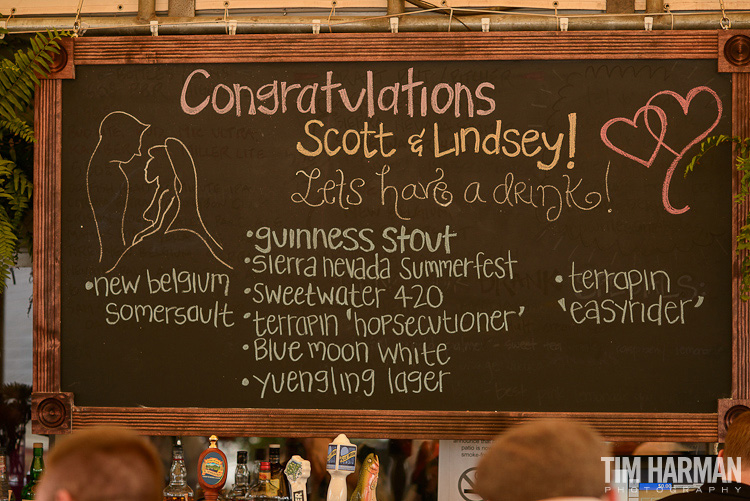 Congratulations
Scott & Lindsey!
Lets have a drink!
• new belgium
somersault
• guinness stout
• sierra nevada summerfest
• sweetwater 420
• terrapin 'hopsecutioner'
• Blue moon white
• yuengling lager
• terrapin
'easyrider'
TIM HARMAN
PHOTOGRAPHY